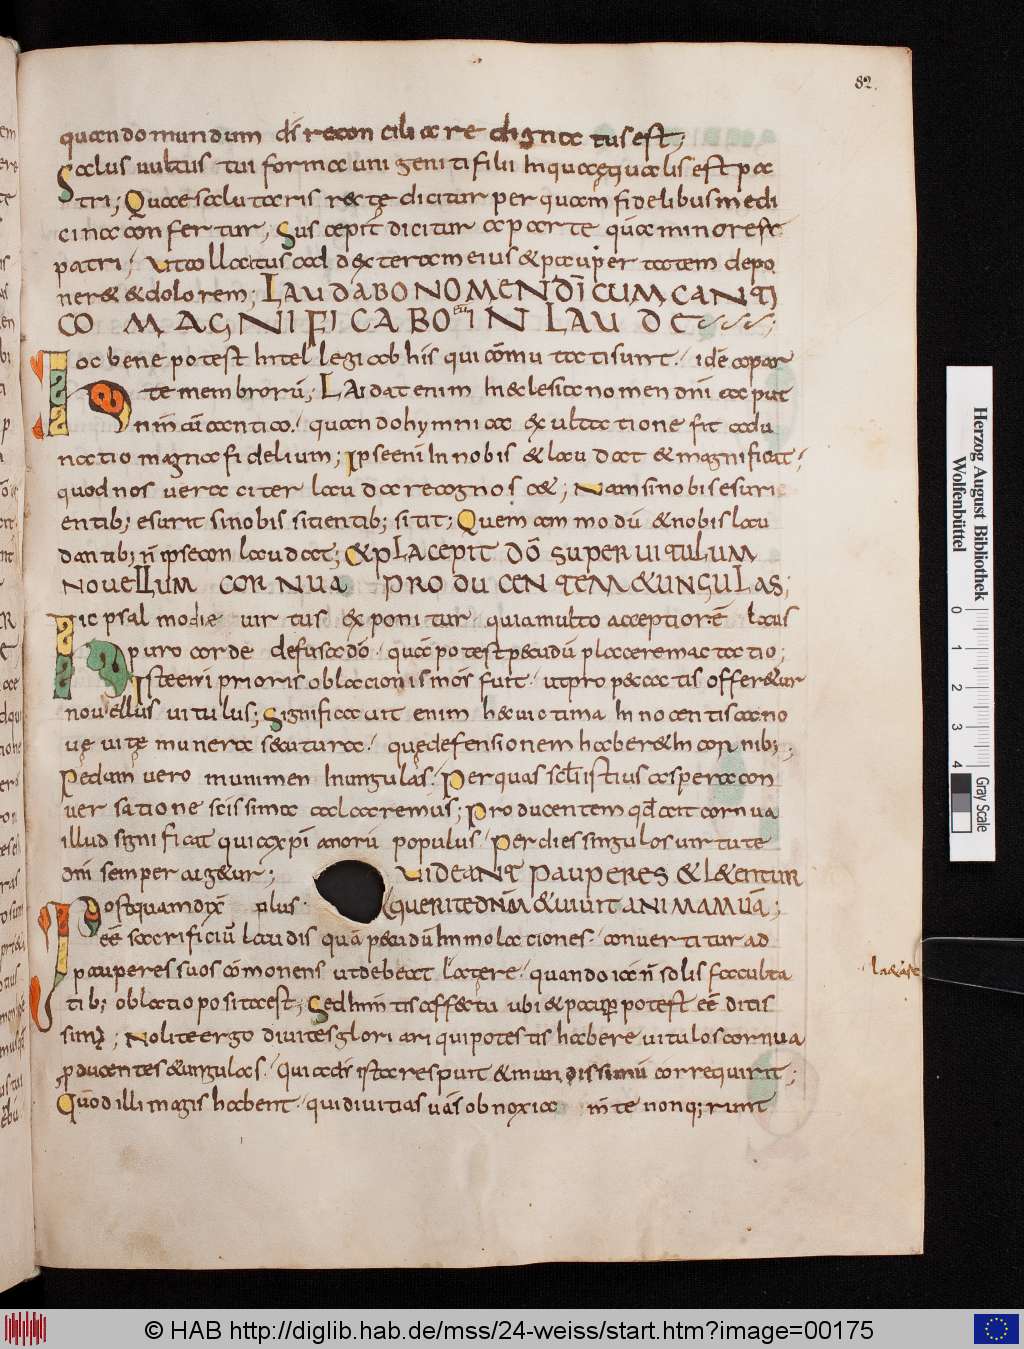 82.
quando mundum dī reconciliare dignatus est;
Salus uultus tui forma unigeniti filii In qua ęqualis est pa
tri; Quae salutaris recte dicitur per quam fidelibus medi
cina confertur; Suscepit dicitur a parte qua minor est
patri; Vt collocatus ad dexteram eius & paupertatem depo
ner& & dolorem; LAUDABO NOMEN DĪ CUM CANTI
CO MAGNIFICABO eū IN LAUDE
Hoc bene potest Intellegi ab his qui cōmutati sunt. idē a par
te membrorū; Laudat enim In eclesia nomen dn̄i caput
n̄m cū cantico. quando hymni ac exultatione fit adu
natio magna fidelium; Ipse enī In nobis & laudat & magnificat;
quod nos ueraciter laudare cognoscat; Nam si nobis esuri
entib; esurit si nobis sitientib; sitit; Quem ammodū & nobis lau
dantib; n̄ ipse conlaudat; & pLACEPIT DŌ SUPER UITULUM
NOUELLUM CORNUA PRODUCENTEM & UNGULAS;
Hic psalmodiae uirtus exponitur quia multo acceptior ē laus
puro corde defusa dō. quā potest pecudū placere mactatio;
Iste enī prioris oblacionis mōs fuit. ut pro peccatis offer&ur
nouellus uitulus; Significauit enim hęc uictima Innocentis ac no
uę uitę munera secutura. quę defensionem haber& In cornib;;
Pedum uero munimen In ungulas. Per quas scl̄i istius aspera con
uersatione scissima calcaremus; Producentem qd̄ ait cornua
illud significat quia xpī amorū populus. Per dies singulos uirtute
dnī semper aug&ur; VIDEANT PAUPERES & L&ENTUR
Postquam dix̄ plus (QUERITE DN̄M & UIUIT ANIMA MUĀ;
eē sacrificiū laudis quā pecudū Immolaciones. conuertitur ad
pauperes suos cōmonens ut debeat laetere. quando iā n̄ solis facculta
tib; oblatio posita est; Sed In m̄tis affectu ubi & paup potest eē ditis
sim;; Nolite ergo diuites gloriari qui potestis habere uitulos cornua
producentes & ungulas. Quia dī ista respuit & mundissimū cor requirit;
Quod illi magis habent. qui diuitias uās obnoxia m̄te non q;runt
Herzog August Bibliothek
Wolfenbüttel
0 1 2 3 4
Gray Scale
© HAB http://diglib.hab.de/mss/24-weiss/start.htm?image=00175